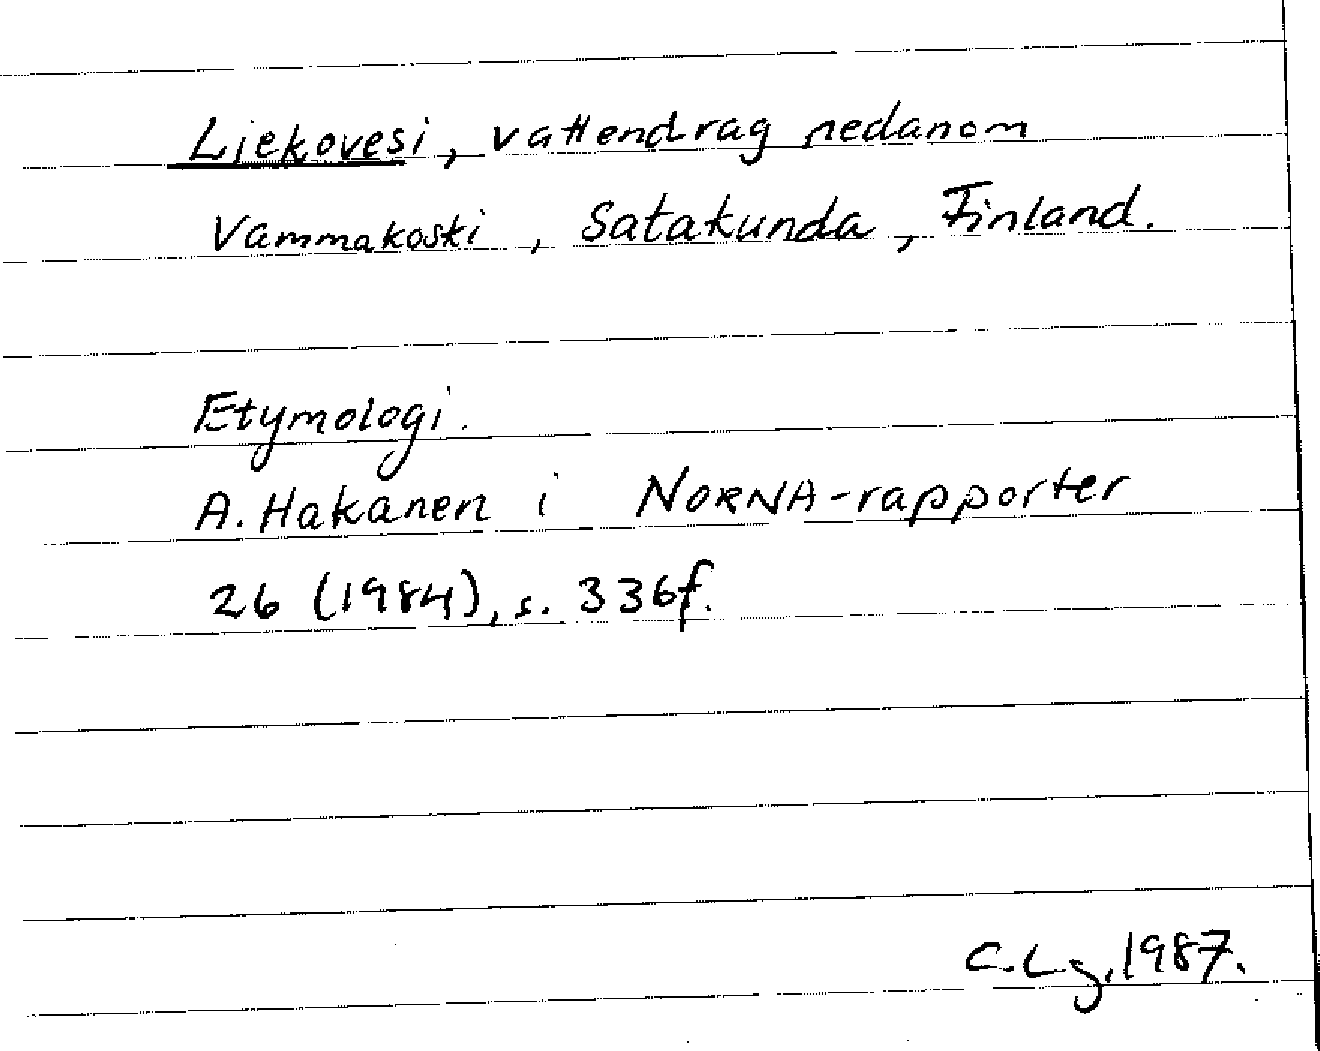 Liekovesi, vattendrag nedanom
Vammakoski, Satakunda, Finland.
Etymologi.
A. Hakanen i NORNA-rapporter
26 (1984), s. 336f.
C. Lg, 1987.